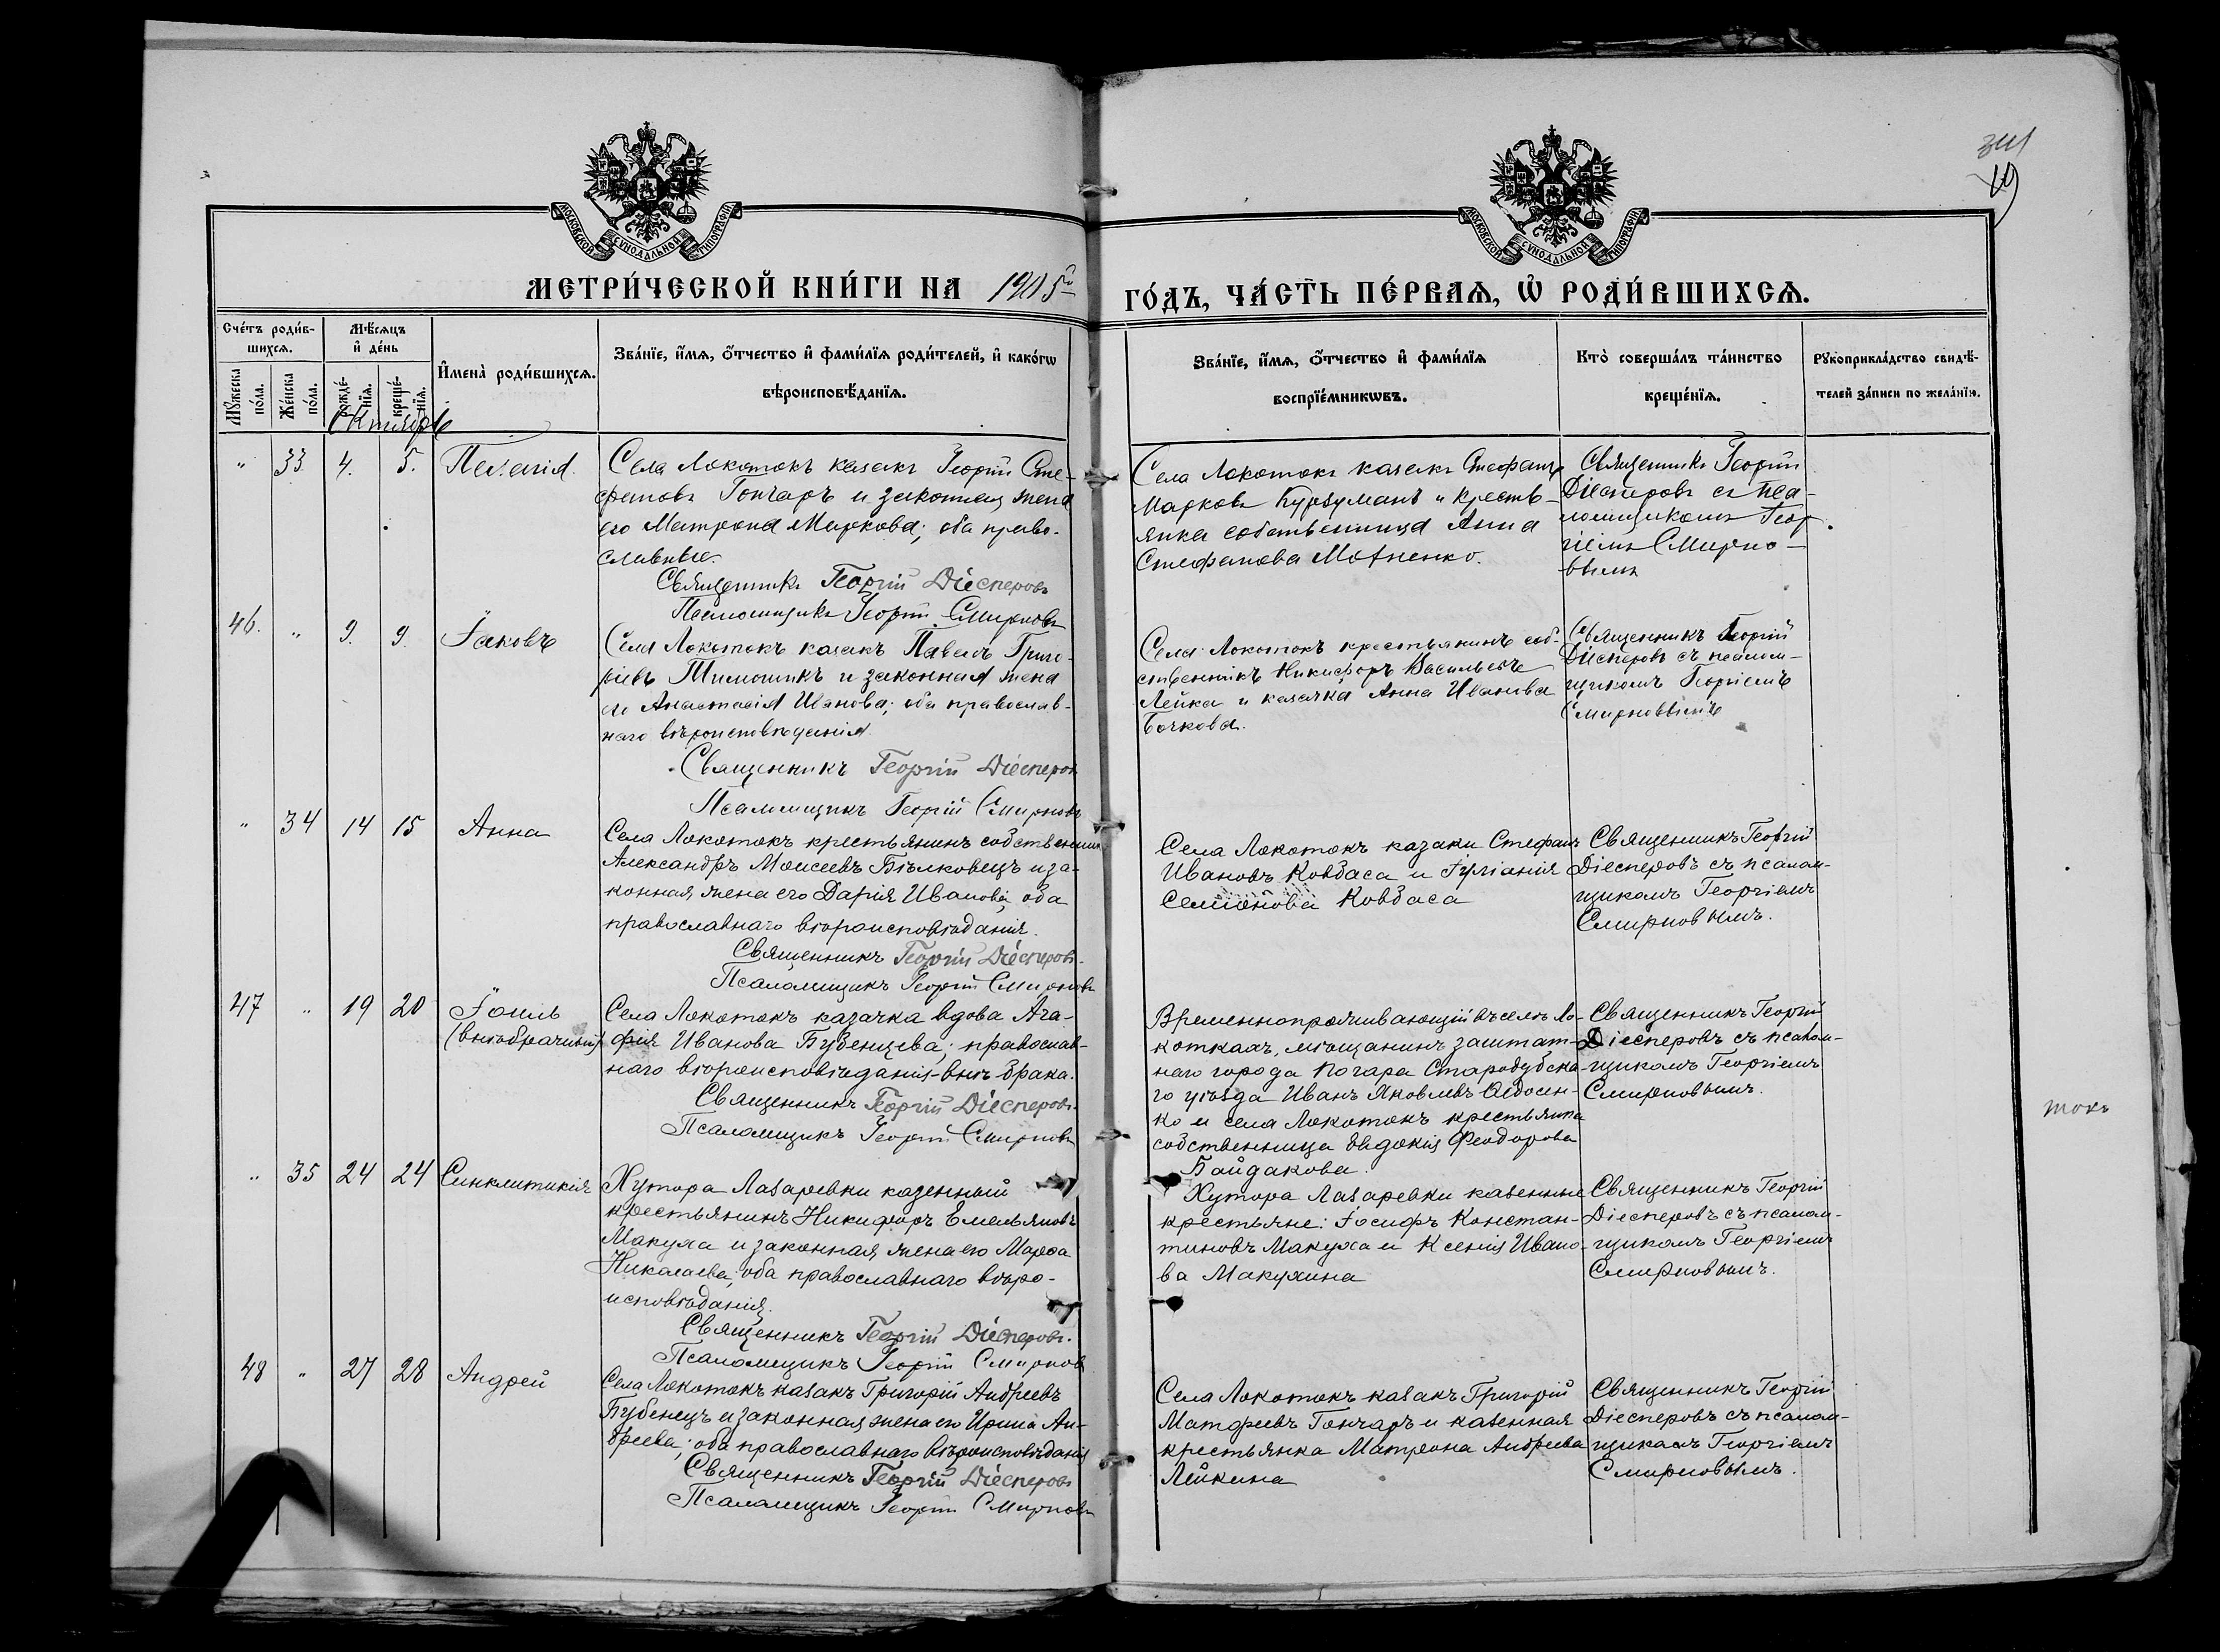 341
19
МОСКОВСКОЙ СѴНОДАЛЬНОЙ ТИПОГРАФІИ
МОСКОВСКОЙ СѴНОДАЛЬНОЙ ТИПОГРАФІИ
МЕТРИ́ЧЕСКОЙ КНИ́ГИ НА 1905й
ГО́ДЪ, ЧА́СТЬ ПЕ́РВАѦ, Ѡ҆ РОДИ́ВШИХСѦ.
Сче́тъ роди́в-
шихсѧ.
Мѣ́сѧцъ
и҆ де́нь
Мꙋ́жеска
по́ла.
Же́нска
по́ла.
рожде́-
нїѧ.
креще́-
нїѧ.
И҆мена̀ роди́вшихсѧ.
Зва́нїе, и҆́мѧ, ѻ҆́тчество и҆ фами́лїѧ роди́телей, и҆ како́гѡ
вѣроисповѣ́данїѧ.
Зва́нїе, и҆́мѧ, ѻ҆́тчество и҆ фами́лїѧ
воспрїе́мникѡвъ.
Кто̀ соверша́лъ та́инство
креще́нїѧ.
Рꙋкоприкла́дство свидѣ́-
телей за́писи по жела́нїю.
Октябрь
" 33. 4. 5.
Села Локотокъ казакъ Георгій Сте-
фановъ Гончаръ и законная жена
его Матрона Маркова; оба право-
славные.
Священникъ Георгій Діесперовъ
Псаломщикъ Георгій Смирновъ
Села Локотокъ казакъ Стефанъ
Марковъ и кресть-
янка собственница Анна
Стефанова
Священникъ Георгій
Діесперовъ съ пса-
ломщикомъ Геор-
гіемъ Смирно-
вымъ
46. " 9. 9. Іаковъ
Села Локотокъ казакъ Павелъ Григо-
рьевъ и законная жена
его Анастасія Иванова; оба православ-
наго вѣроисповѣданія.
Священникъ Георгій Діесперовъ
Псаломщикъ Георгій Смирновъ
Села Локотокъ крестьянинъ соб-
ственникъ Никифоръ Васильевъ
Лейка и казачка Анна Иванова
Бочкова.
Священникъ Георгій
Діесперовъ съ псалом-
щикомъ Георгіемъ
Смирновымъ
" 34 14 15 Анна
Села Локотокъ крестьянинъ собственникъ
Александръ Моисеевъ Бѣлковецъ и за-
конная жена его Дарія Иванова; оба
православнаго вѣроисповѣданія.
Священникъ Георгій Діесперовъ.
Псаломщикъ Георгій Смирновъ
Села Локотокъ казаки Стефанъ
Ивановъ Ковбаса и Іуліанія
Семіонова Ковбаса
Священникъ Георгій
Діесперовъ съ псалом-
щикомъ Георгіемъ
Смирновымъ.
47 " 19 20 Іоиль
(внѣбрачный)
Села Локотокъ казачка вдова Ага-
фія Иванова Бубенцева; православ-
наго вѣроисповѣданія-внѣ брака.
Священникъ Георгій Діесперовъ.
Псаломщикъ Георгій Смирновъ
Временнопроживающій въ селѣ Ло-
коткахъ, мѣщанинъ заштат-
наго города Погара Стародубска-
го уѣзда Иванъ Яковлевъ
и села Локотокъ крестьянка
собственница Евдокія Феодорова
Байдакова.
Священникъ Георгій
Діесперовъ съ псалом-
щикомъ Георгіемъ
Смирновымъ.
токъ
" 35 24 24 Синклитикія
Хутора Лазаревки казенный
крестьянинъ Никифоръ Емельяновъ
Макуха и законная жена его Марѳа
Николаева; оба православнаго вѣро-
исповѣданія.
Священникъ Георгій Діесперовъ.
Псаломщикъ Георгій Смирновъ
Хутора Лазаревки казенные
крестьяне: Іосифъ Констан-
тиновъ Макуха и Ксенія Ивано-
ва Макухина
Священникъ Георгій
Діесперовъ съ псалом-
щикомъ Георгіемъ
Смирновымъ.
48 " 27 28 Андрей
Села Локотокъ казакъ Григорій Андреевъ
Бубенецъ и законная жена его Ирина Ан-
дреева; оба православнаго вѣроисповѣданія
Священникъ Георгій Діесперовъ
Псаломщикъ Георгій Смирновъ
Села Локотокъ казакъ Григорій
Матфеевъ Гончаръ и казенная
крестьянка Матрона Андреева
Лейкина
Священникъ Георгій
Діесперовъ съ псалом-
щикомъ Георгіемъ
Смирновымъ.